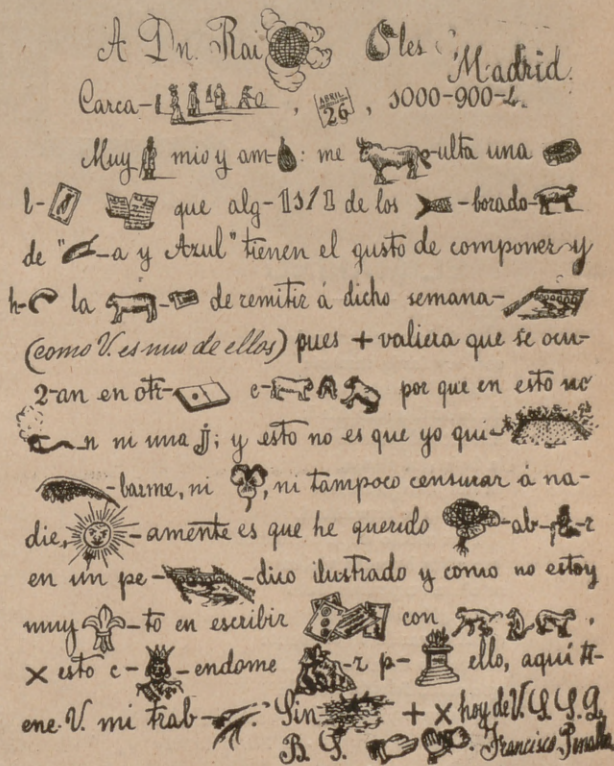 A Dn. Rai les Madrid.
Carca- , ABRIL 26 , 1000-900-L.
Muy mio y am- : me -ulta una
l- que alg-1 s/1 de los -borado-
de " -a y Azul" tienen el gusto de componer y
h- la - de remitir á dicho semana-
(como V. es uno de ellos) pues + valiera que se ocu-
2-an en otr- c- por que en esto no
-n ni una J; y esto no es que yo qui-
-barme, ni , ni tampoco censurar á na-
die, -amente es que he querido -ab- -r
en un pe- -dico ilustrado y como no estoy
muy -to en escribir con ,
× esto c- -endome -r p- ello, aquí ti-
ene V. mi trab- . Sin + × hoy de V. S. S. Q.
B. S. . Francisco